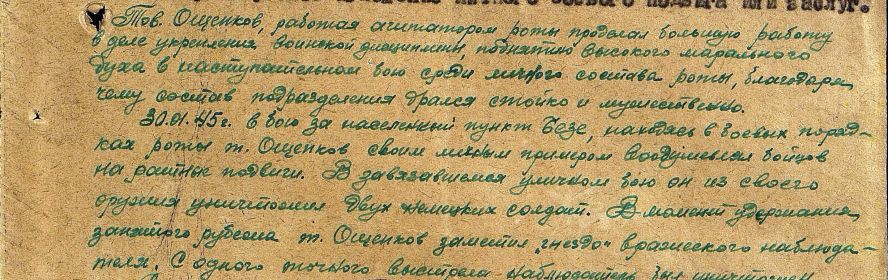 личного боевого подвига или заслуг.
Тов. Ощепков, работая агитатором роты проделал большую работу
в деле укрепления воинской дисциплины, поднятию высокого марального
духа в наступательном бою среди личного состава роты, благодаря
чему состав подразделения дрался стойко и мужественно.
30.01.45г. в бою за населенный пункт Безе, находясь в боевых поряд-
ках роты т. Ощепков своим личным примером воодушевлял бойцов
на ратные подвиги. В завязавшемся уличном бою он из своего
оружия уничтожил двух немецких солдат. В момент удержания
занятого рубежа т. Ощепков заметил "гнездо" вражеского наблюда-
теля. С одного точного выстрела наблюдатель был уничтожен